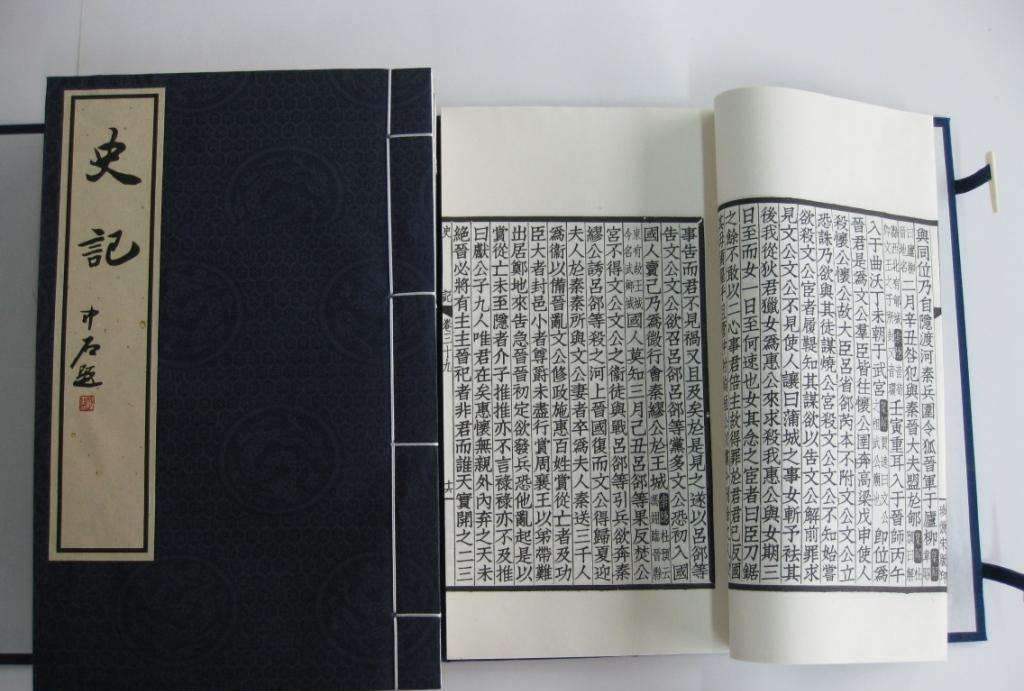 史記
中石題
與同位乃自隱渡河秦兵圍令狐晉軍于廬柳
二月辛丑咎犯與秦晉大夫盟於郇
壬寅重耳入于晉師丙午
入于曲沃丁未朝于武宮 即位爲
晉君是爲文公羣臣皆往懷公圉奔高梁戊申使人
殺懷公懷公故大臣呂省郤芮本不附文公文公立
恐誅乃欲與其徒謀燒公宮殺文公文公不知始嘗
欲殺文公宦者履鞮知其謀欲以告文公解前罪求
見文公文公不見使人讓曰蒲城之事女斬予袪其
後我從狄君獵女爲惠公來求殺我惠公與女期三
日至而女一日至何速也女其念之宦者曰臣刀鋸
之餘不敢以二心事君倍主故得罪於君君已反國
事告而君不見禍又且及矣於是見之遂以呂郤等
告文公文公欲召呂郤呂郤等黨多文公恐初入國
國人賣己乃爲微行會秦繆公於王城 索隱 杜預云馮翊臨晉縣
東有故王城今名武鄉城 國人莫知三月己丑呂郤等果反焚公
宮不得文公文公之衞徒與戰呂郤等引兵欲奔秦
繆公誘呂郤等殺之河上晉國復而文公得歸夏迎
夫人於秦秦所與文公妻者卒爲夫人秦送三千人
爲衞以備晉亂文公修政施惠百姓賞從亡者及功
臣大者封邑小者尊爵未盡行賞周襄王以弟帶難
出居鄭地來告急晉初定欲發兵恐他亂起是以
賞從亡未至隱者介子推推亦不言祿祿亦不及推
曰獻公子九人唯君在矣惠懷無親外內弃之天未
絕晉必將有主主晉祀者非君而誰天實開之二三
史記卷三十九